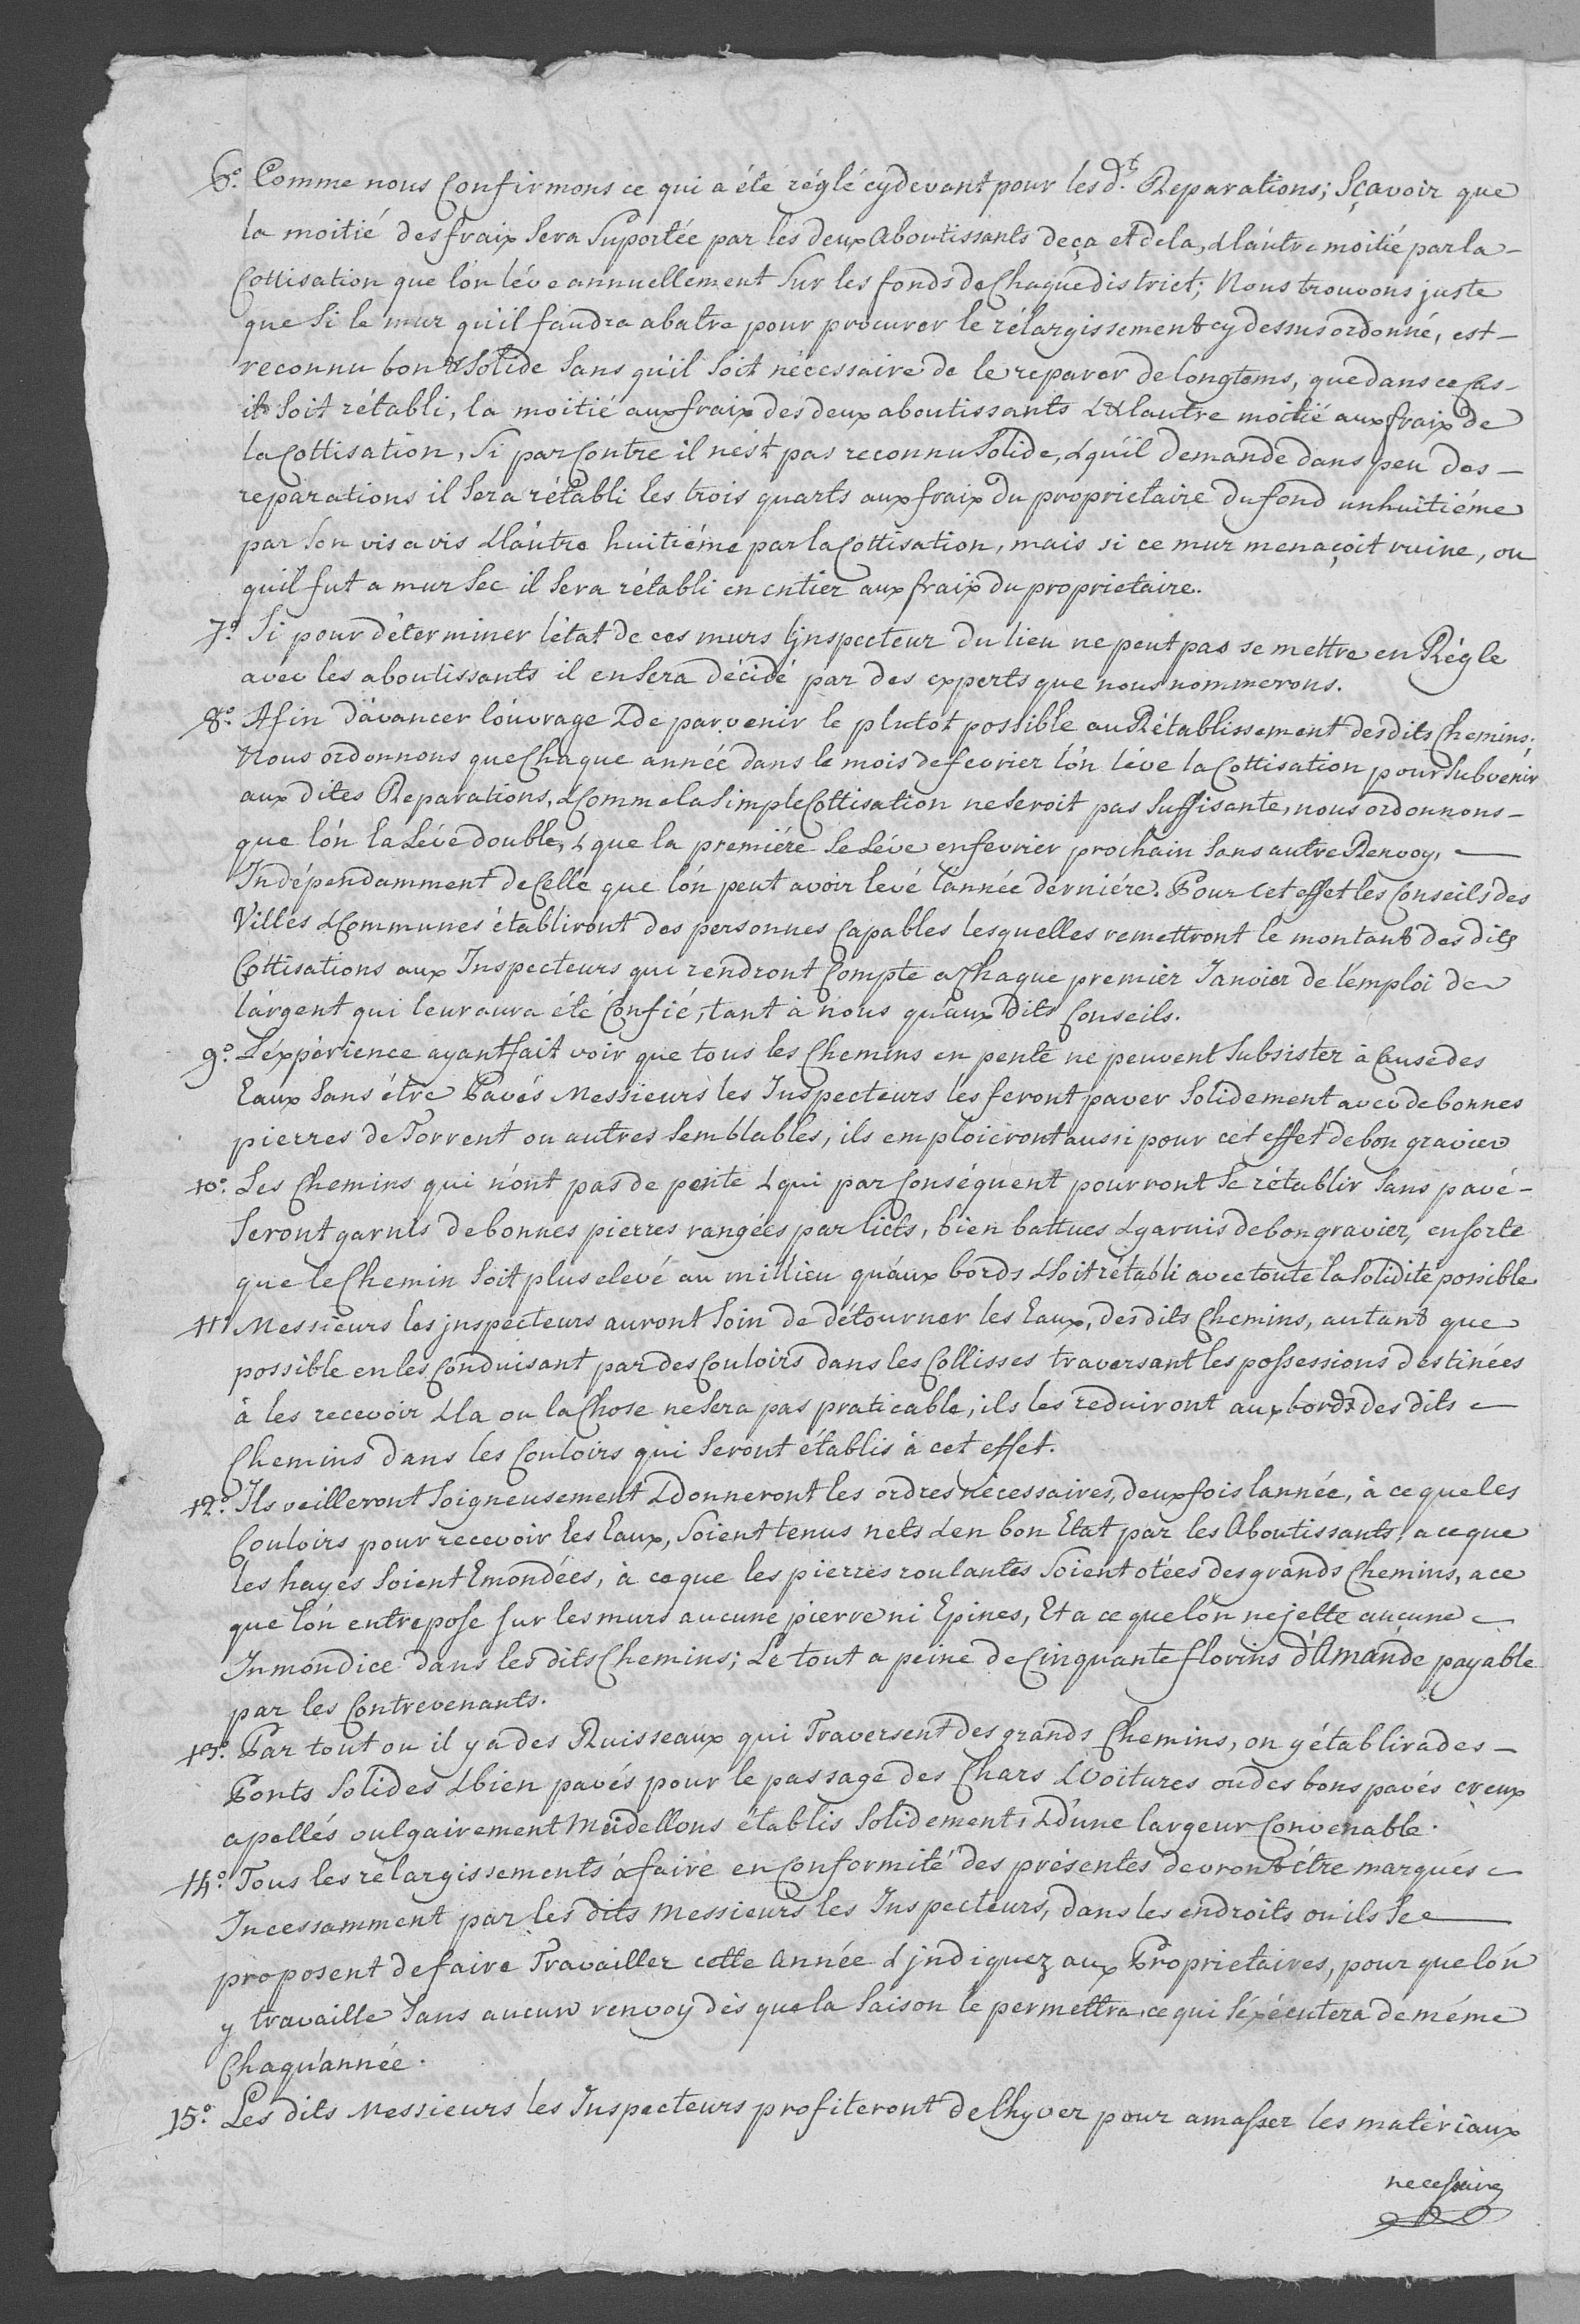 6.° Comme nous Confirmons ce qui a été réglé cydevant pour les d.ts Reparations; Sçavoir que
la moitié des fraix Sera Suportée par les deux Aboutissants deça et de la, & láutre moitié par la -
Cottisation que lón léve annuellement Sur les fonds de Chaque district; Nous trouvons juste
que Si le mur quíl faudra abatre pour procurer le rélargissement cy dessus ordonné, est -
reconnu bon & Solide Sans quíl Soit nécessaire de le reparer de longtems, que dans ce Cas -
il Soit rétabli, la moitié aux fraix des deux aboutissants & lautre moitié aux fraix de
la Cottisation, Si par Contre il nest pas reconnu Solide, & quíl demande dans peu des -
reparations il Sera rétabli les trois quarts aux fraix du proprietaire du fond un huitiéme
par Son vis a vis & láutre huitiéme par la Cottisation, mais si ce mur menaçoit ruine, ou
quil fut a mur Sec il Sera rétabli en entier aux fraix du proprietaire.
7.° Si pour déterminer létat de ces murs Ljnspecteur du lieu ne peut pas se mettre en Régle
avec les aboutissants il en Sera décidé par des experts que nous nommerons.
8.° Afin dávancer lóuvrage & de parvenir le plutót possible au Rétablissement desdits Chemins;
Nous ordonnons que Chaque année dans le mois de fevrier lón léve la Cottisation pour Subvenir
aux dites Reparations, & Comme la Simple Cottisation ne Seroit pas Suffisante, nous ordonnons -
que lón la Léve double, & que la premiére Se Léve en fevrier prochain Sans autre Renvoy, —
Indépendamment de Celle que lón peut avoir levé lannée derniére. Pour Cet effet les Conseils des
Villes & Communes établiront des personnes Capables lesquelles remettront le montant des dits
Cottisations aux Inspecteurs qui rendront Compte a Chaque premier Janvier de lémploi de
lárgent qui leur aura été Confié, tant à nous quáux dits Conseils.
9.° Léxpérience ayant fait voir que tous les Chemins en pente ne peuvent Subsister à Cause des
Eaux Sans étre Pavés Messieurs les Inspecteurs les feront paver Solidement avec de bonnes
pierres de Torrent ou autres Semblables, ils emploieront aussi pour cet effet de bon gravier
10.° Les Chemins qui nónt pas de pente & qui par Conséquent pourront Se rétablir Sans pavé -
Seront garnis de bonnes pierres rangées par licts, bien battues & garnis de bon gravier, en Sorte
que le Chemin Soit plus elevé au millieu quáux bords & Soit rétabli avec toute la Solidité possible
11° Messieurs les jnspecteurs auront Soin de détourner les Eaux, des dits Chemins, autant que
possible en les Conduisant par des Couloirs dans les Collisses traversant les possessions destinées
à les recevoir & la ou la Chose ne Sera pas praticable, ils les reduiront aux bords des dits -
Chemins dans les Couloirs qui Seront établis à cet effet.
12.° Ils veilleront Soigneusement & donneront les ordres nécessaires, deux fois lannée, à ce que les
Couloirs pour recevoir les Eaux, Soient tenus nets & en bon Etat par les Aboutissants, a ce que
les hayes Soient Emondées, à ce que les pierres roulantes Soient otées des grands Chemins, a ce
que lón entrepose sur les murs aucune pierre ni Epines, Et a ce que lón ne jette aucune -
Inmondice dans les dits Chemins; Le tout a peine de Cinquante florins d'Amande payable
par les Contrevenants.
13.° Par tout ou il y a des Ruisseaux qui Traversent des grands Chemins, on y établira des -
Ponts Solides & bien pavés pour le passage des Chars & Voitures ou des bons pavés creux
apellés vulgairement Meidellons établis Solidement, & dúne largeur Convenable.
14.° Tous les rélargissements à faire en Conformité des présentes devront étre marqués -
Incessamment par les dits Messieurs les Inspecteurs, dans les endroits ou ils Se —
proposent de faire Travailler cette Année & jndiquez aux Proprietaires, pour que lón
y travaille Sans aucun renvoy dès que la Saison le permettra, ce qui Séxécutera de méme
Chaqu'année.
15.° Les dits Messieurs les Inspecteurs profiteront de Lhyver pour amasser les matériaux
necessaires